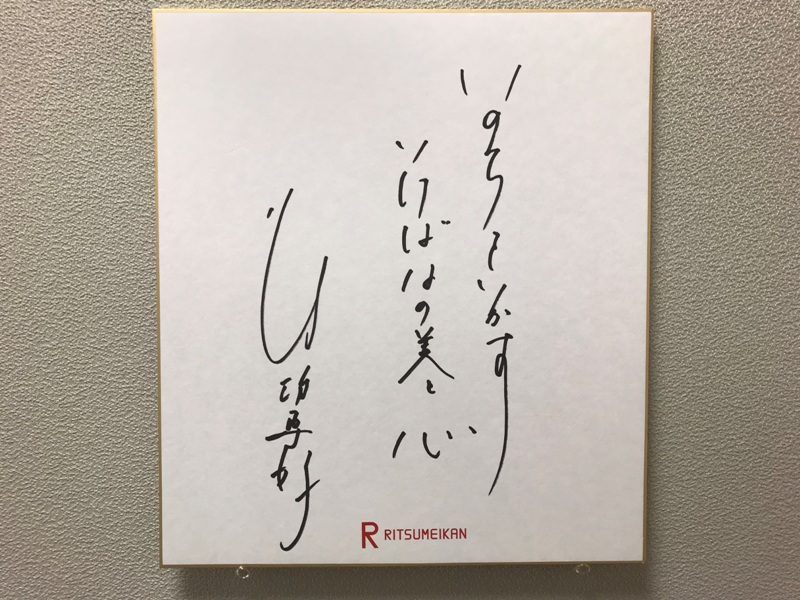 いのちをいかす
いけばなの美と心
池坊専好
RITSUMEIKAN